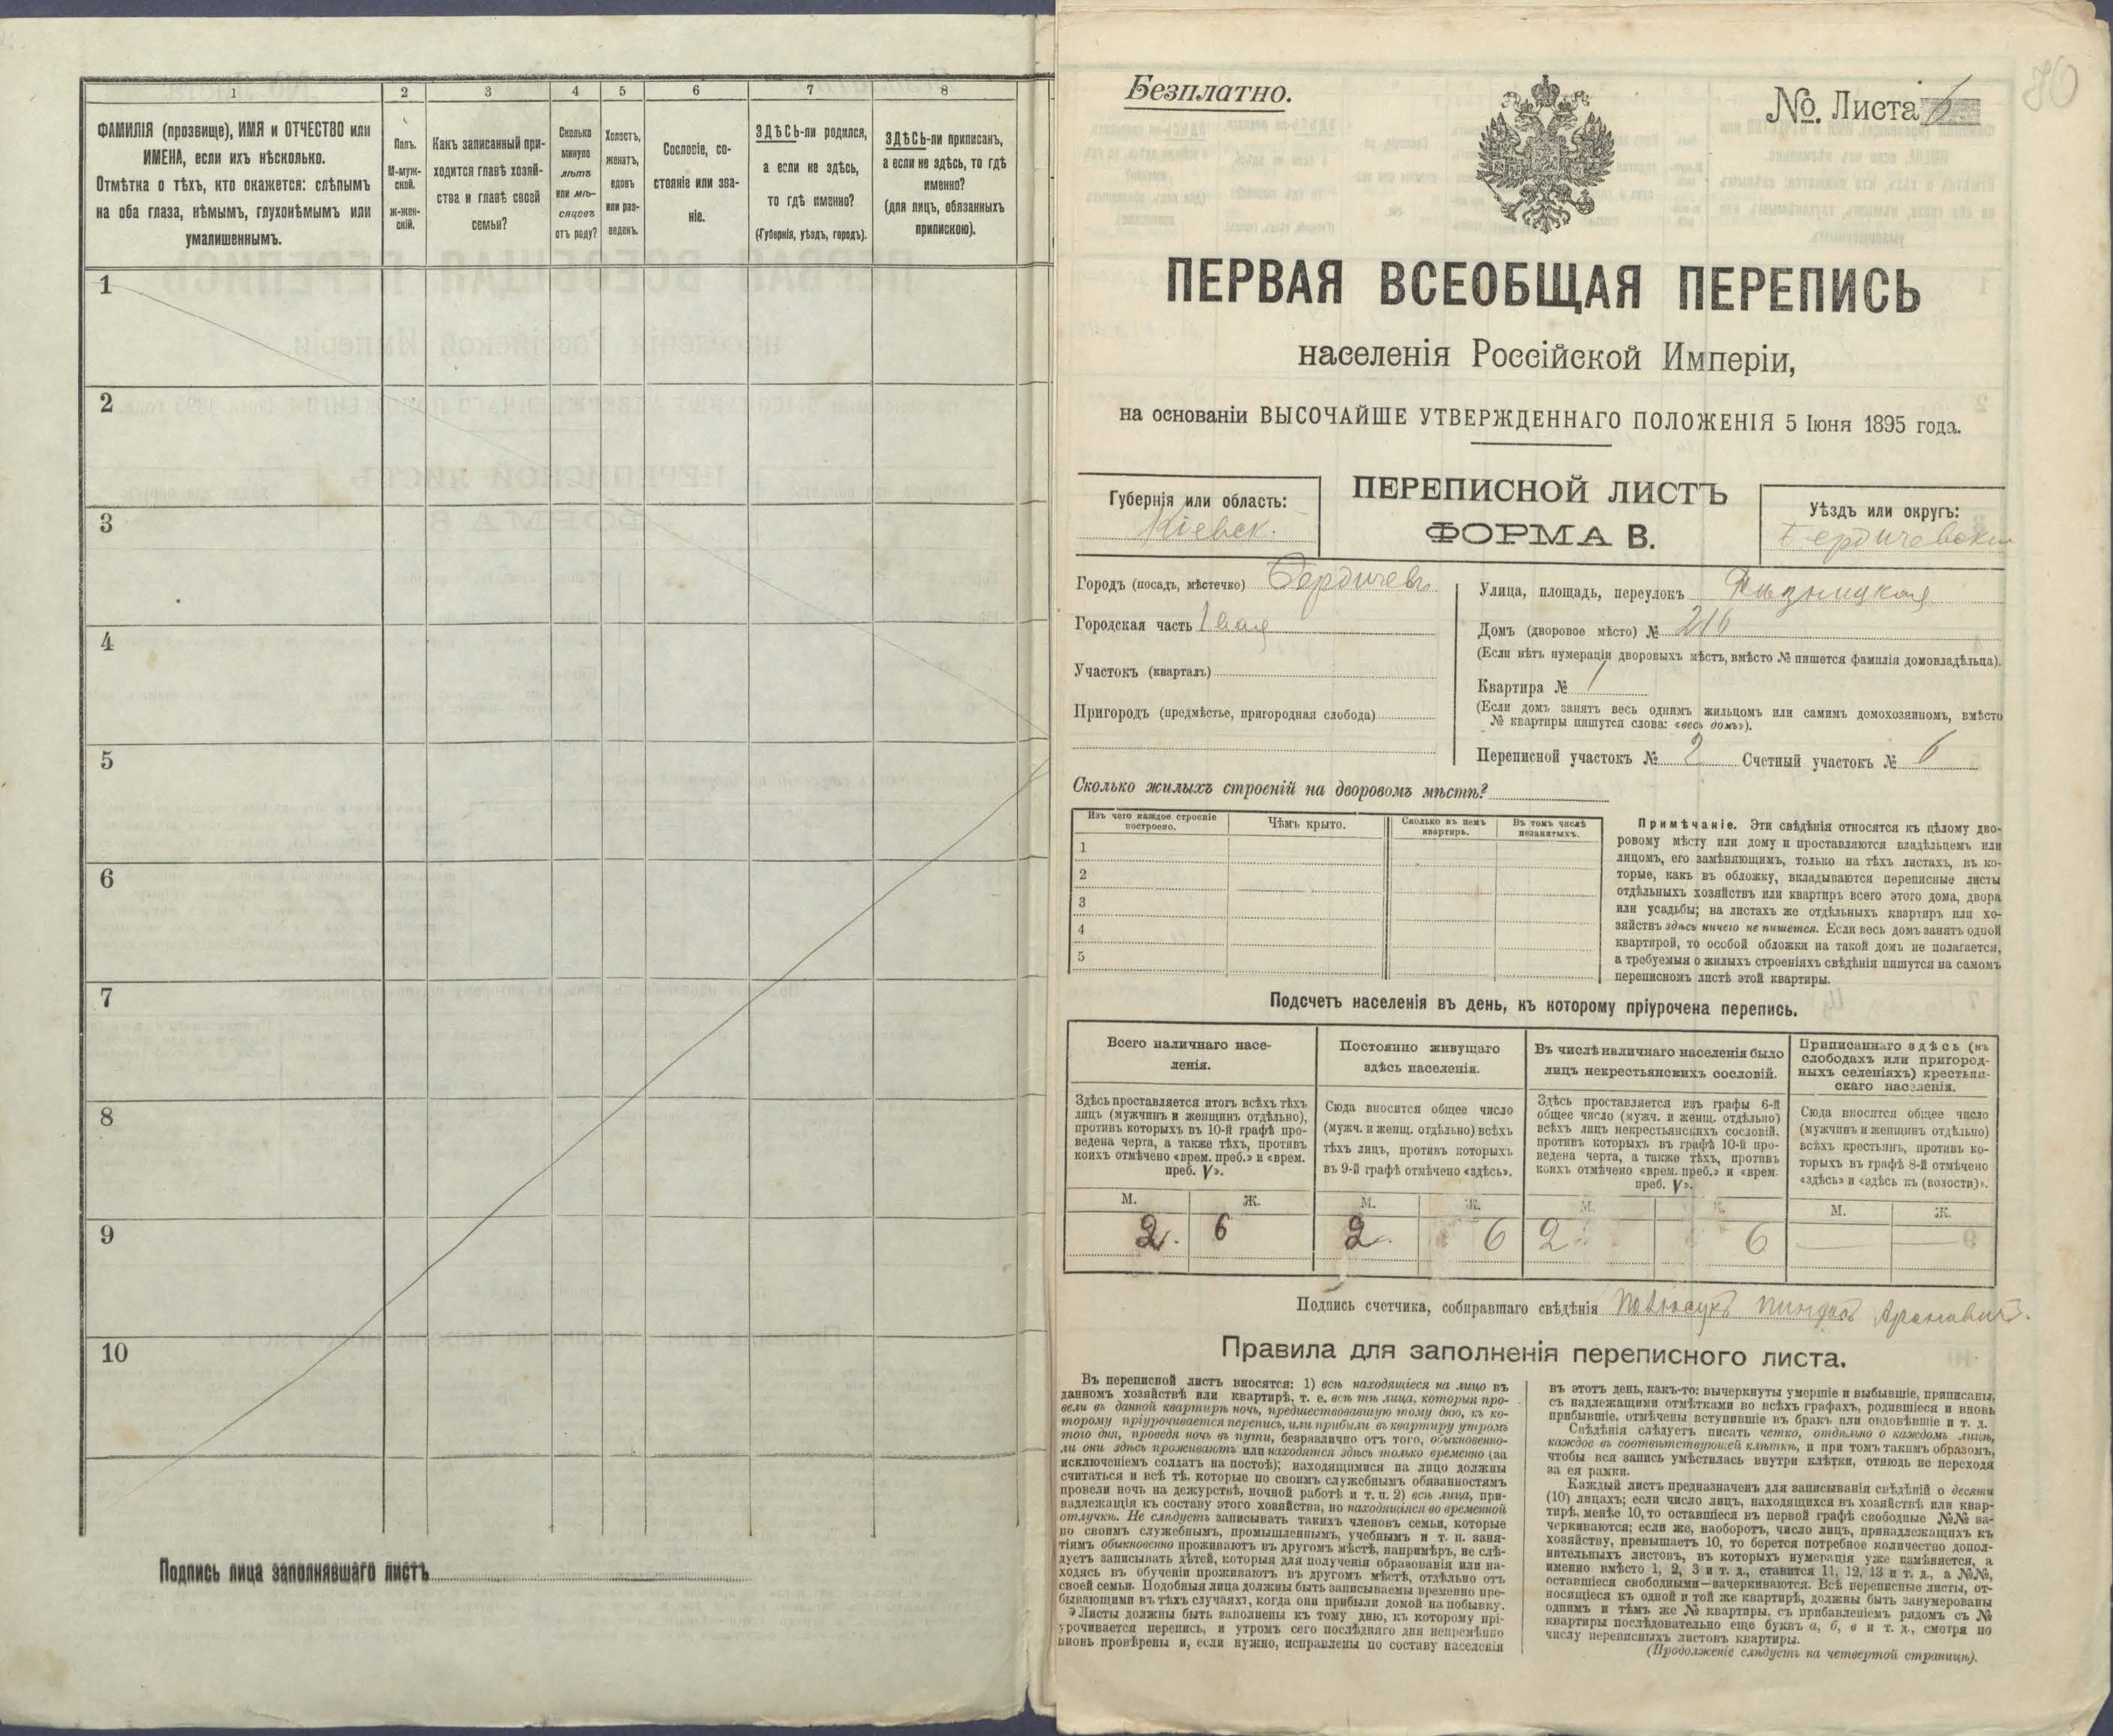 1
2
3
4
5
6
7
8
ФАМИЛІЯ (прозвище), ИМЯ и ОТЧЕСТВО или
ИМЕНА, если ихъ нѣсколько.
Отмѣтка о тѣхъ, кто окажется: слѣпымъ
на оба глаза, нѣмымъ, глухонѣмымъ или
умалишеннымъ.
Полъ.
М-муж-
ской.
ж-жен-
скій.
Какъ записанный при-
ходится главѣ хозяй-
ства и главѣ своей
семьи?
Сколько
минуло
лѣтъ
или мѣ-
сяцевъ
отъ роду?
Холостъ,
женатъ,
вдовъ
или раз-
веденъ.
Сословіе, со-
стояніе или зва-
ніе.
ЗДѢСЬ-ли родился,
а если не здѣсь,
то гдѣ именно?
(Губернія, уѣздъ, городъ).
ЗДѢСЬ-ли приписанъ,
а если не здѣсь, то гдѣ
именно?
(для лицъ, обязанныхъ
припискою).
1
2
3
4
5
6
7
8
9
10
Подпись лица заполнявшаго листъ
Безплатно.
№. Листа 6
70
ПЕРВАЯ ВСЕОБЩАЯ ПЕРЕПИСЬ
населенія Россійской Имперіи,
на основаніи ВЫСОЧАЙШЕ УТВЕРЖДЕННАГО ПОЛОЖЕНІЯ 5 Іюня 1895 года.
Губернія или область:
Кіевск.
ПЕРЕПИСНОЙ ЛИСТЪ
ФОРМА В.
Уѣздъ или округъ:
Бердичевскій
Городъ (посадъ, мѣстечко) Бердичевъ
Городская часть 1вая
Участокъ (кварталъ)
Пригородъ (предмѣстье, пригородная слобода)
Улица, площадь, переулокъ
Домъ (дворовое мѣсто) № 216
(Если нѣтъ нумераціи дворовыхъ мѣстъ, вмѣсто № пишется фамилія домовладѣльца).
Квартира № 1
(Если домъ занятъ весь однимъ жильцомъ или самимъ домохозяиномъ, вмѣсто
№ квартиры пишутся слова: «весь домъ»).
Переписной участокъ № 2 Счетный участокъ № 6
Сколько жилыхъ строеній на дворовомъ мѣстѣ?
Изъ чего каждое строеніе
построено.
Чѣмъ крыто.
Сколько въ немъ
квартиръ.
Въ томъ числѣ
незанятыхъ.
1
2
3
4
5
Примѣчаніе. Эти свѣдѣнія относятся къ цѣлому дво-
ровому мѣсту или дому и проставляются владѣльцемъ или
лицомъ, его замѣняющимъ, только на тѣхъ листахъ, въ ко-
торые, какъ въ обложку, вкладываются переписные листы
отдѣльныхъ хозяйствъ или квартиръ всего этого дома, двора
или усадьбы; на листахъ же отдѣльныхъ квартиръ или хо-
зяйствъ здѣсь ничего не пишется. Если весь домъ занятъ одной
квартирой, то особой обложки на такой домъ не полагается,
а требуемыя о жилыхъ строеніяхъ свѣдѣнія пишутся на самомъ
переписномъ листѣ этой квартиры.
Подсчетъ населенія въ день, къ которому пріурочена перепись.
Всего наличнаго насе-
ленія.
Постоянно живущаго
здѣсь населенія.
Въ числѣ наличнаго населенія было
лицъ некрестьянскихъ сословій.
Приписаннаго здѣсь (въ
слободахъ или пригород-
ныхъ селеніяхъ) крестьян-
скаго населенія.
Здѣсь проставляется итогъ всѣхъ тѣхъ
лицъ (мужчинъ и женщинъ отдѣльно),
противъ которыхъ въ 10-й графѣ про-
ведена черта, а также тѣхъ, противъ
коихъ отмѣчено «врем. преб.» и «врем.
преб. V».
Сюда вносится общее число
(мужч. и женщ. отдѣльно) всѣхъ
тѣхъ лицъ, противъ которыхъ
въ 9-й графѣ отмѣчено «здѣсь».
Здѣсь проставляется изъ графы 6-й
общее число (мужч. и женщ. отдѣльно)
всѣхъ лицъ некрестьянскихъ сословій.
противъ которыхъ въ графѣ 10-й про-
ведена черта, а также тѣхъ, противъ
коихъ отмѣчено «врем. преб.» и «врем.
преб. V».
Сюда вносится общее число
(мужчинъ и женщинъ отдѣльно)
всѣхъ крестьянъ, противъ ко-
торыхъ въ графѣ 8-й отмѣчено
«здѣсь» и «здѣсь къ (волости)».
М. Ж. М. Ж. М. Ж. М. Ж.
2. 6 2. 6 2 6
Подпись счетчика, собиравшаго свѣдѣнія
Правила для заполненія переписного листа.
Въ переписной листъ вносятся: 1) всѣ находящіеся на лицо въ
данномъ хозяйствѣ или квартирѣ, т. е. всѣ тѣ лица, которыя про-
вели въ данной квартирѣ ночь, предшествовавшую тому дню, къ ко-
торому пріурочивается перепись, или прибыли въ квартиру утромъ
того дня, проведя ночь въ пути, безразлично отъ того, обыкновенно-
ли они здѣсь проживаютъ или находятся здѣсь только временно (за
исключеніемъ солдатъ на постоѣ); находящимися на лицо должны
считаться и всѣ тѣ, которые по своимъ служебнымъ обязанностямъ
провели ночь на дежурствѣ, ночной работѣ и т. п. 2) всѣ лица, при-
надлежащія къ составу этого хозяйства, но находящіяся во временной
отлучкѣ. Не слѣдуетъ записывать такихъ членовъ семьи, которые
по своимъ служебнымъ, промышленнымъ, учебнымъ и т. п. заня-
тіямъ обыкновенно проживаютъ въ другомъ мѣстѣ, напримѣръ, не слѣ-
дуетъ записывать дѣтей, которыя для полученія образованія или на-
ходясь въ обученіи проживаютъ въ другомъ мѣстѣ, отдѣльно отъ
своей семьи. Подобныя лица должны быть записываемы временно пре-
бывающими въ тѣхъ случаяхъ, когда они прибыли домой на побывку.
Листы должны быть заполнены къ тому дню, къ которому прі-
урочивается перепись, и утромъ сего послѣдняго дня непремѣнно
вновь провѣрены и, если нужно, исправлены по составу населенія
въ этотъ день, какъ-то: вычеркнуты умершіе и выбывшіе, приписаны,
съ надлежащими отмѣтками во всѣхъ графахъ, родившіеся и вновь
прибывшіе, отмѣчены вступившіе въ бракъ или овдовѣвшіе и т. д.
Свѣдѣнія слѣдуетъ писать четко, отдѣльно о каждомъ лицѣ,
каждое въ соотвѣтствующей клѣткѣ, и при томъ такимъ образомъ,
чтобы вся запись умѣстилась внутри клѣтки, отнюдь не переходя
за ея рамки.
Каждый листъ предназначенъ для записыванія свѣдѣній о десяти
(10) лицахъ; если число лицъ, находящихся въ хозяйствѣ или квар-
тирѣ, менѣе 10, то оставшіеся въ первой графѣ свободные №№ за-
черкиваются; если же, наоборотъ, число лицъ, принадлежащихъ къ
хозяйству, превышаетъ 10, то берется потребное количество допол-
нительныхъ листовъ, въ которыхъ нумерація уже измѣняется, а
именно вмѣсто 1, 2, 3 и т. д., ставится 11, 12, 13 и т. д., а №№,
оставшіеся свободными—зачеркиваются. Всѣ переписные листы, от-
носящіеся къ одной и той же квартирѣ, должны быть занумерованы
однимъ и тѣмъ же № квартиры, съ прибавленіемъ рядомъ съ №
квартиры послѣдовательно еще буквъ а, б, в и т. д., смотря по
числу переписныхъ листовъ квартиры.
(Продолженіе слѣдуетъ на четвертой страницѣ).